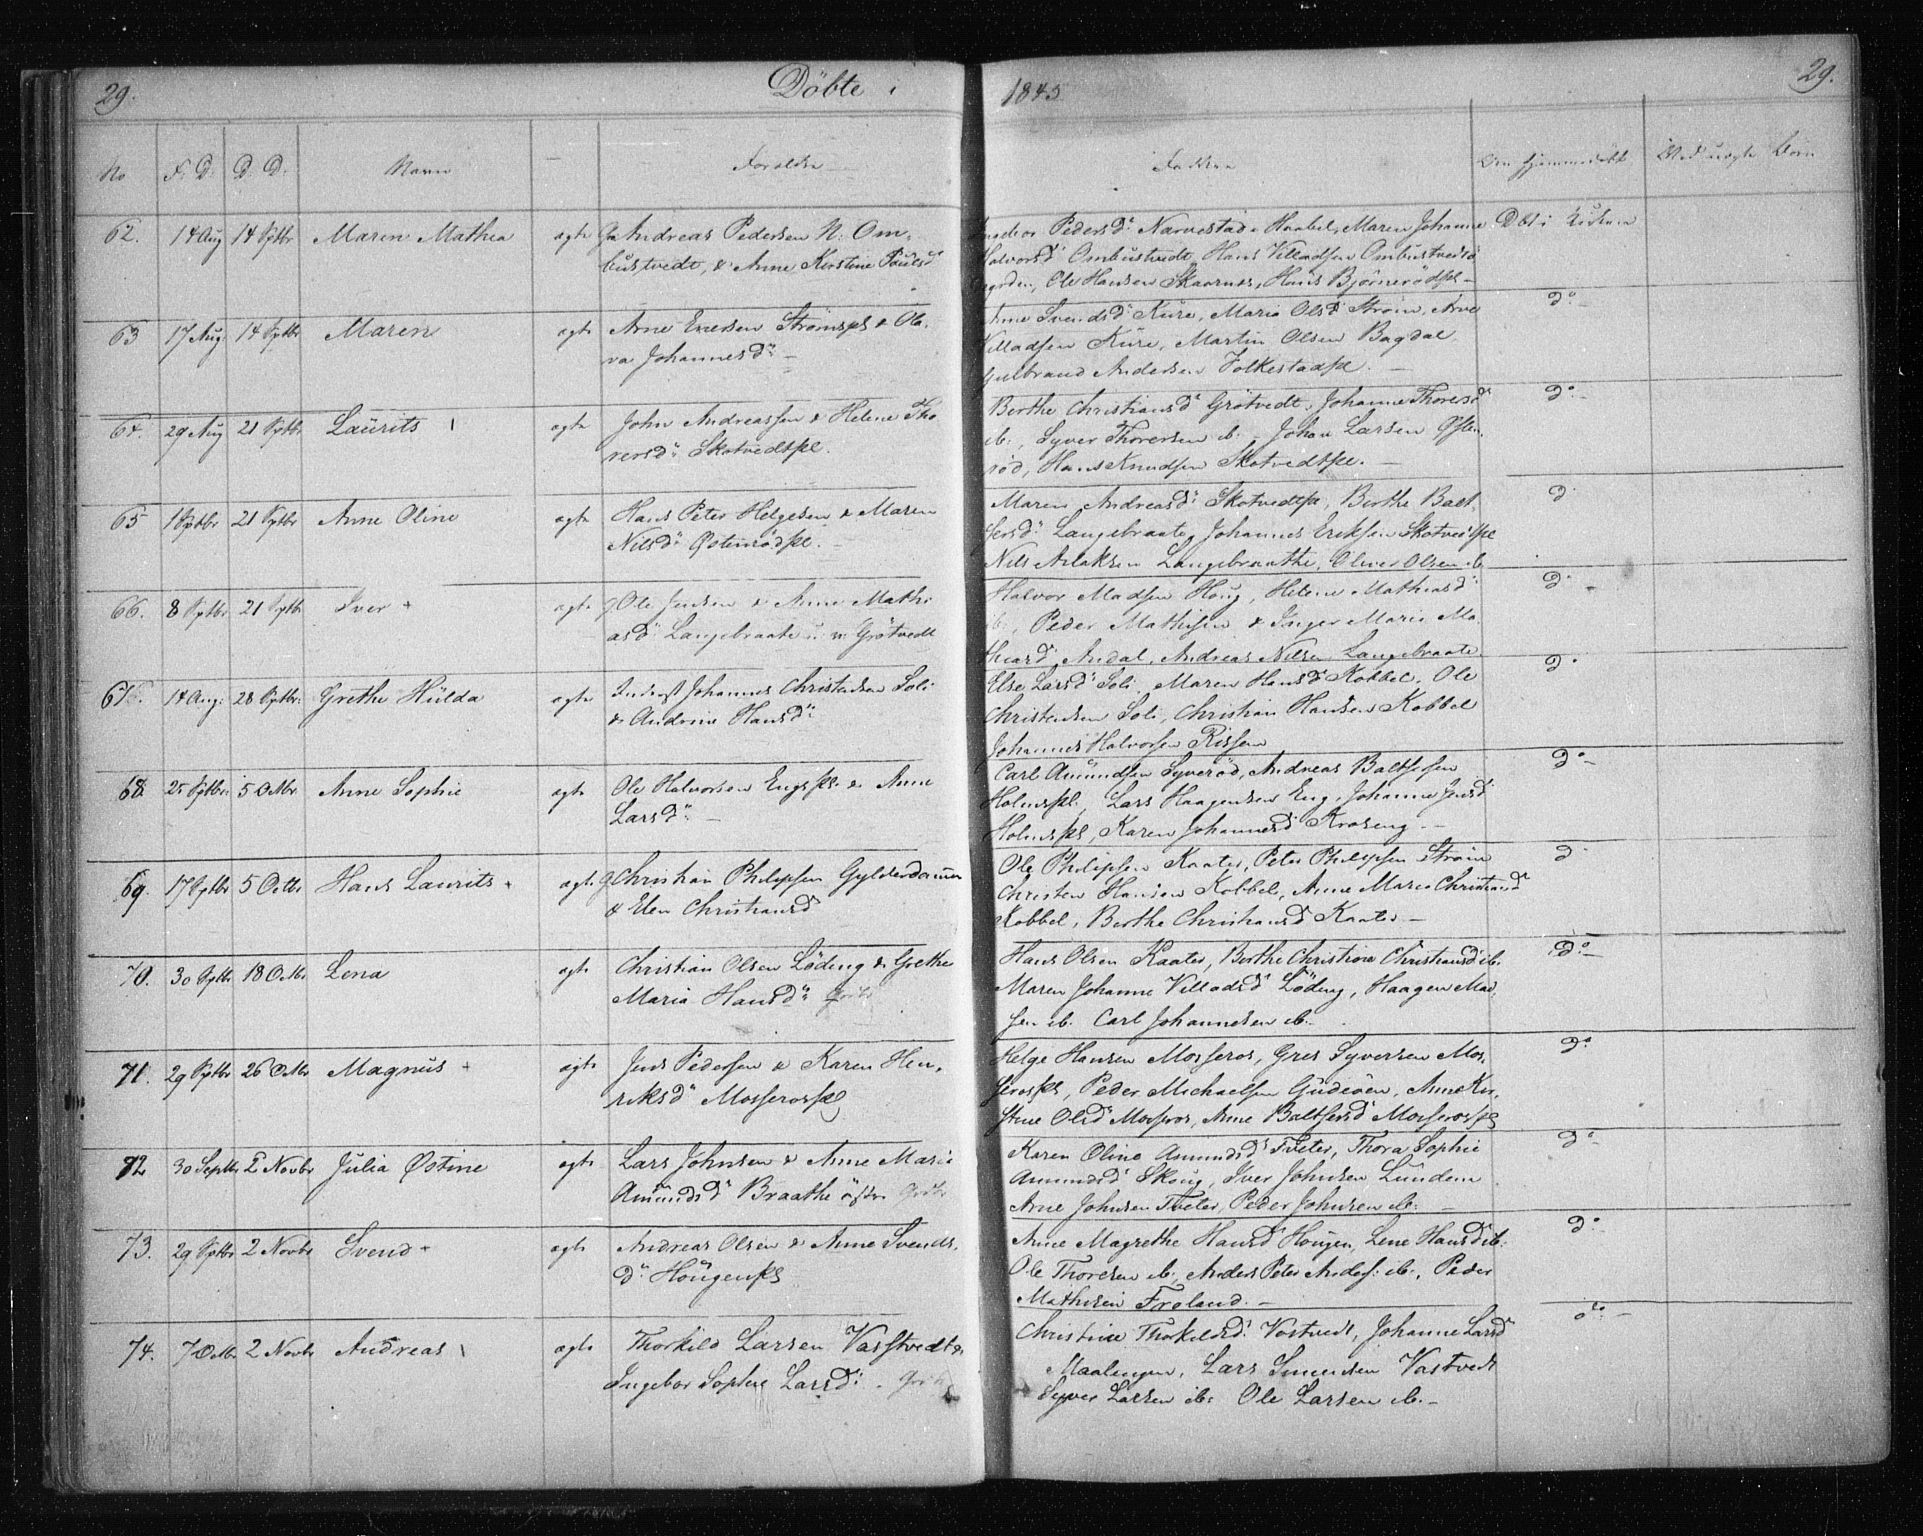 29. Döbte i 1845 29.
No F. D. D. D. Navn Forældre Faddere Om hjemmedöbt Ved uægte Børn
62. 14 Aug 14 Sptbr Maren Mathea ægte Andreas Pedersen N: Om-
bustvedt, & Anne Kirstine Poulsd
Pedersd: Narvestad, Haabel, Maren Johanne Döbt i Kirken
Halvorsd Ombustvedt, Hans Villadsen Ombustvedt
Ole Hansen Skaarnes, Hans Björnerödspl –
63 17 Aug: 14 Sptbr Maren ægte Arne Enersen Strömspl & Ole-
va Johannesd: –
Anne Svendsd: Kure, Maria Olsd: Ström, Arve do –
Villadsen Kure, Martin Olsen Bagdal
Gulbrand Andersen Folkestadspl. –
64. 29 Aug 21 Sptbr Laurits ægte John Andreassen & Helene Tho-
rersd: Skotvedtspl.
Berthe Christiansd: Grötvedt, Johanne Thorersd do –
ib:, Syver Thorersen ib. Johan Larsen Östen-
röd, Hans Knudsen Skotvedtspl. –
65 1 Sptbr 21 Sptbr Anne Oline ægte Hans Peter Helgesen & Maren
Nilsd: Östenrödspl. –
Maren Andreasd: Skotvedtspl, Berthe Balt- do
sersd: Langebraate, Johannes Eriksen Skotvedtspl
Nils Aslaksen Langebraathe, Oliver Olsen ib.
66. 8 Sptbr 21 Sptbr Iver ægte Ole Jensen & Anne Mathi-
asd: Langebraate Grötvedt
Halvor Madsen Houg, Helene Mathiasd: do –
ib., Peder Mathisen & Inger Marie Ma-
thiasd Andal, Andreas Nilsen Langebraate
67. 14 Aug: 28 Sptbr: Grethe Hulda ægte Inderst Johannes Christensen Soli
& Andrine Hansd:
Else Larsd: Soli, Maren Hansd: Kobbel, Ole do
Christensen Soli, Christian Hansen Kobbel
Johannes Halvorsen Rissen
68. 25 Sptbr: 5 Octbr Anne Sophie ægte Ole Halvorsen Engspl. & Anne
Larsd: –
Carl Amundsen Syveröd, Andreas Baltsersen do –
Holmspl., Lars Haagensen Eng, Johanne Jensd
Holmspl, Karen Johannesd: Kroseng –
69. 17 Sptbr 5 Octbr Hans Laurits ægte Christian Philipsen Gylderdammen
& Elen Christiansd
Ole Philipsen Kaater, Peter Philipsen Ström do
Christen Hansen Kobbel, Anne Marie Christiansd
Kobbel, Berthe Christiansd Kaater –
70. 30 Sptbr 18 Octbr Lena ægte Christian Olsen Löding & Grethe
Maria Hansd:
Hans Olsen Kaater, Berthe Christine Christiansd ib. do –
Maren Johanne Villadsd: Löding, Haagen Mad-
sen ib. Carl Johannesen ib. –
71. 29 Sptbr 26 Octbr Magnus ægte Jens Pedersen & Karen Hen-
riksd: Mosserospl
Helge Hansen Mosseros, Gres Syversen Mos- do
serospl, Peder Michaelsen Gudeöen, Anne Kir-
stine Olsd Mosseros, Anne Baltsersd Mosserospl
72 30 Septbr 2 Novbr Julia Östine ægte Lars Johnsen & Anne Marie
Amundsd: Braathe östre
Karen Oline Amundsd: Tveter, Thora Sophie do –
Amundsd: Skoug, Iver Johnsen Lunden
Arne Johnsen Tveter, Peder Johnsen ib: –
73. 29 Sptbr 2 Novbr Svend ægte Andreas Olsen & Anne Svends-
d: Hougenspl
Anne Magrethe Hansd Hougen, Lene Hansd ib. do
Ole Thoresen ib., Anders Peter Anders: ib., Peder
Mathisen Froland. –
74. 7 Octbr 2 Novbr Andreas ægte Thorkild Larsen Vasstvedt &
Ingebor Sophie Larsd:
Christine Thorkildsd: Vastvedt, Johanne Larsd do –
Maalengen, Lars Simensen Vastvedt
Syver Larsen ib: Ole Larsen ib. –